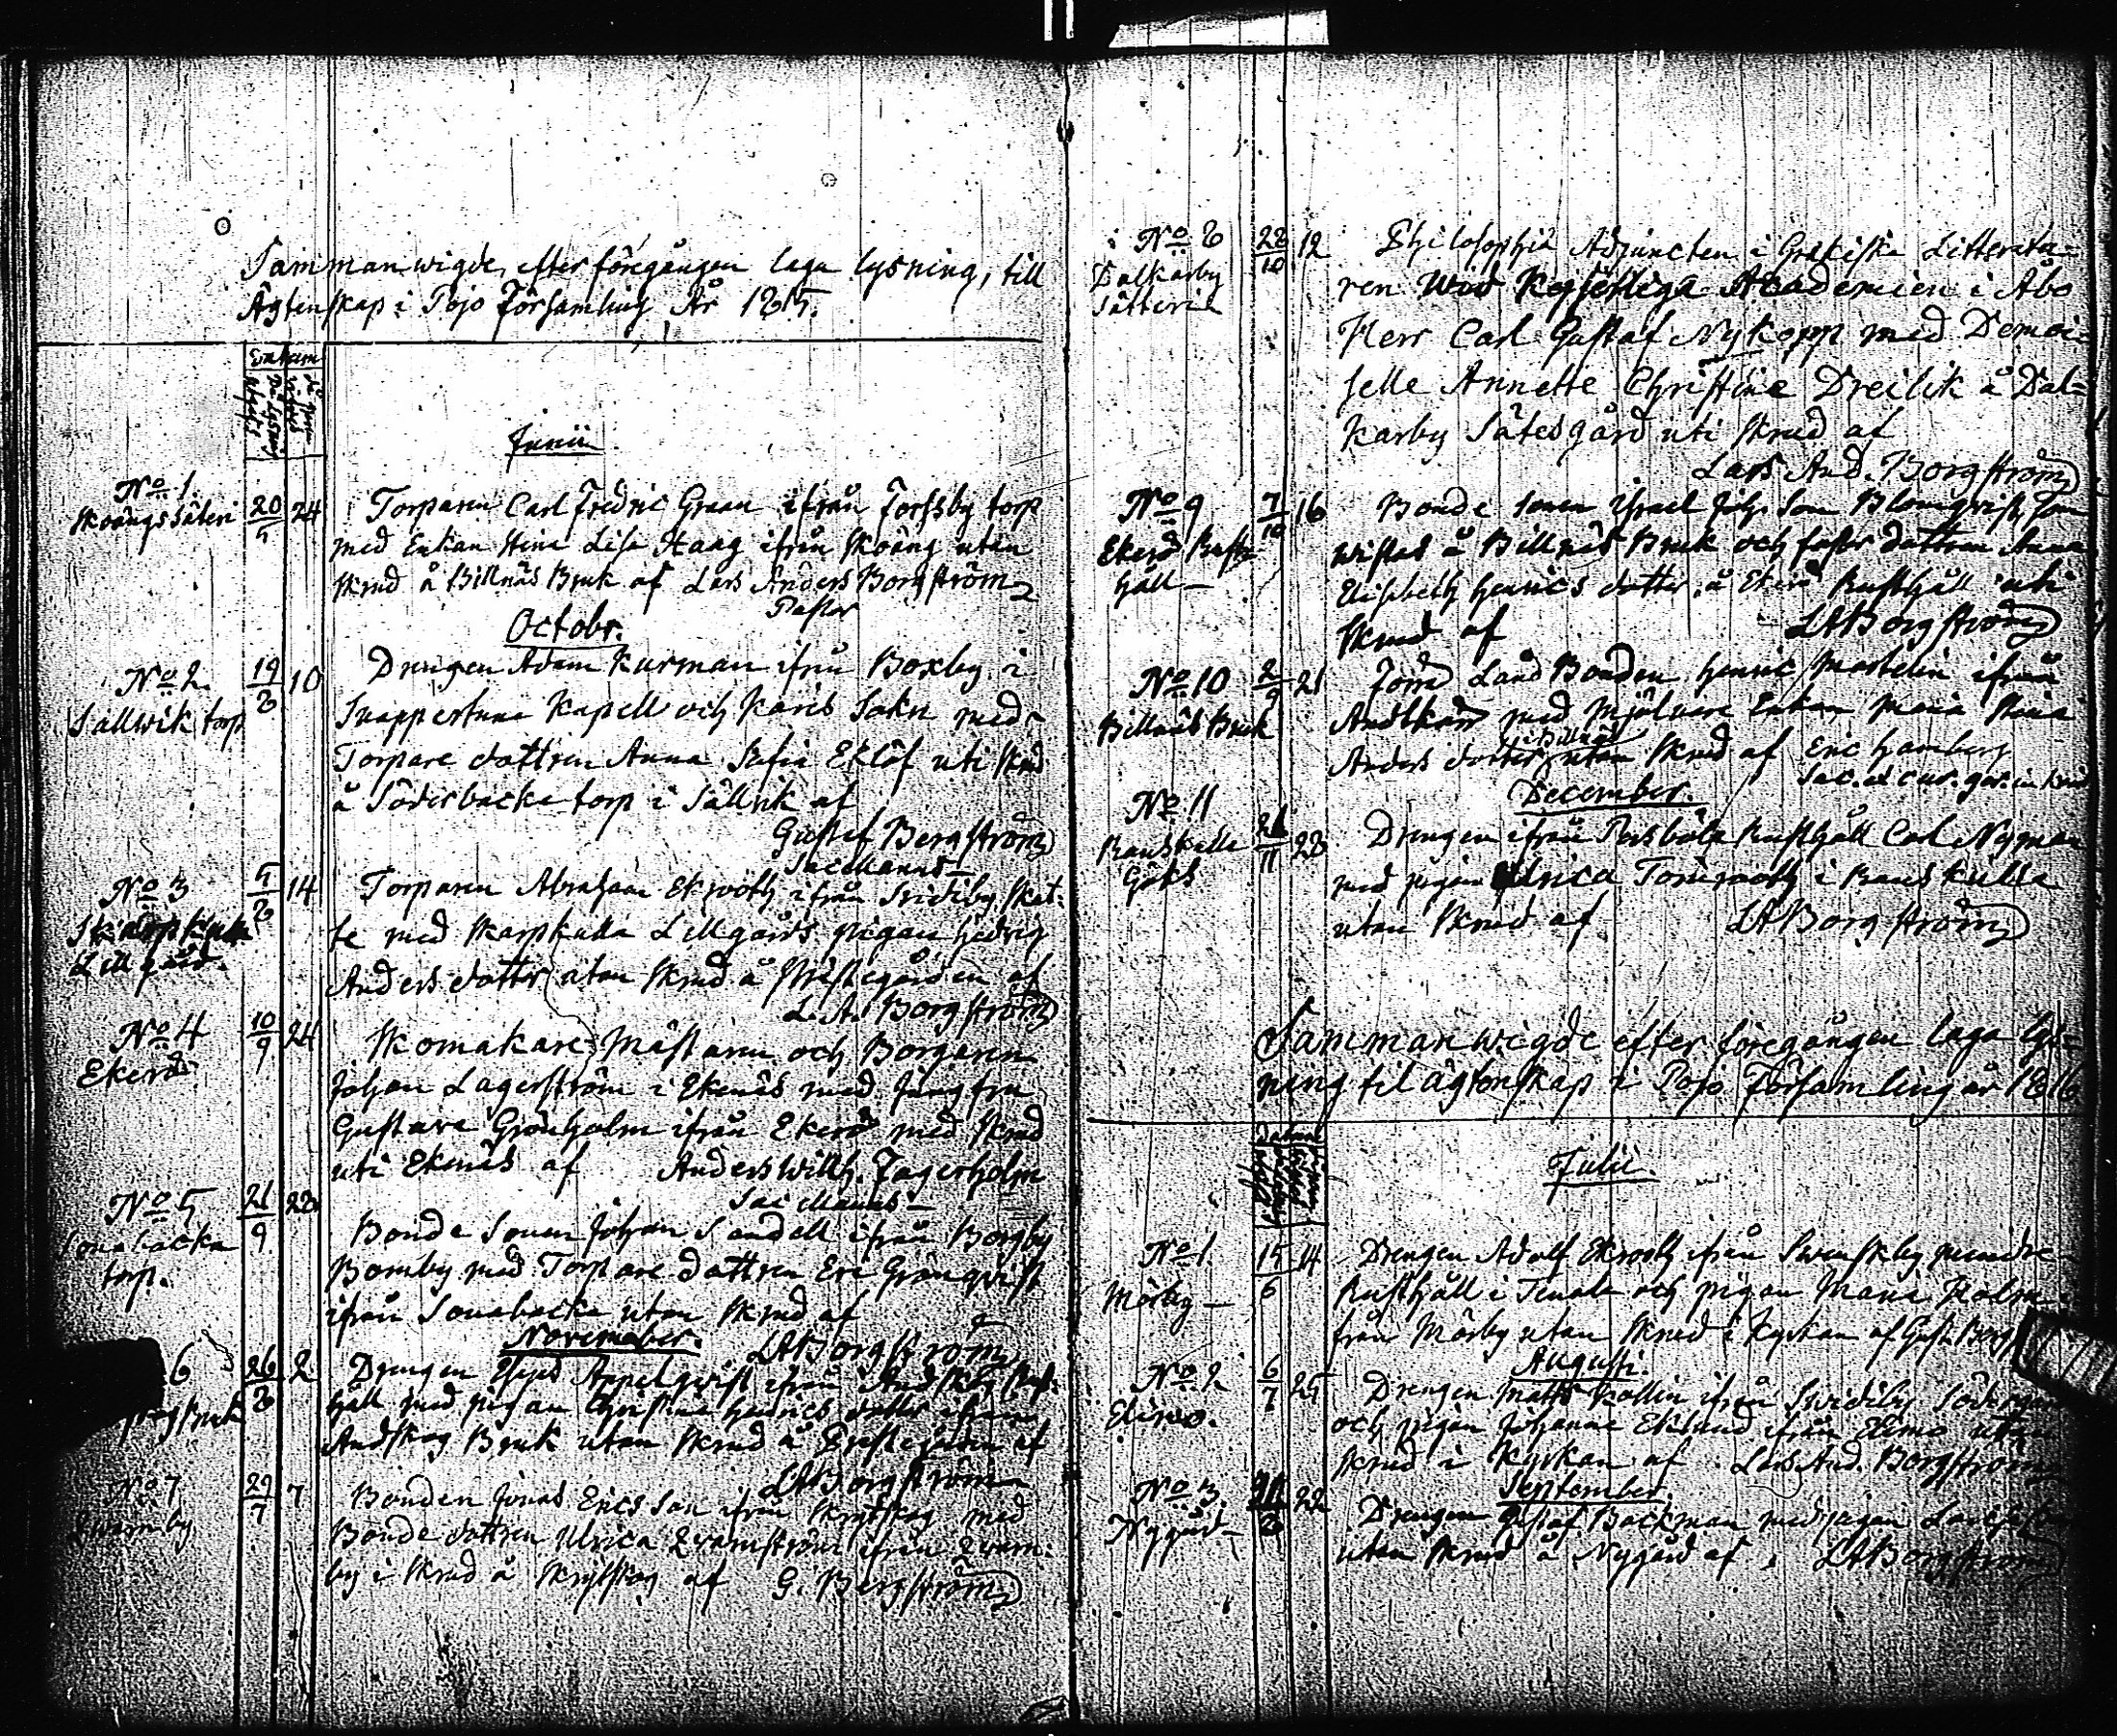 Sammanwigde, efter föregången laga lysning, till
Ägtenskap i Pojo Församling År 1815.
Datum
Junii
No 1.
Skoängs Säteri
20/5 24
Torparen Carl Fredric Graan ifrån Forsby torp
med Enkan Stina Lisa Haag ifrån Skoäng utan
Skrud å Billnäs Bruk af Lars Anders Borgström
Pastor
Octobr.
No 2.
Sällwik torp
19/8 10
Drengen Adam Kurman ifrån Boxby i
Snappertuna Kapell och Karis Sokn med
Torpare dottren Anna Sofia Eklöf uti Skrud
å Söderbacka torp i Sällvik af
Gustaf Bergström
Sac Manus
No 3
Skarpkulla
Lillgård.
5/8 14
Torparen Abraham Ekroth ifrån Sidiby Skat-
te med Skarpkulla Lillgårds pigan Hedvig
Anders dotter utan Skrud å Prästegården af
L. A. Borgström
No 4
Ekerö
10/9 24
Skomakare Mästaren och Borgaren
Johan Lagerström i Ekenäs med Jungfru
Gustava Grönholm ifrån Ekerö med Skrud
uti Ekenäs af Anders Wilh. Fagerholm
Sac Manus
No 5
Sonabacka
torp.
21/9 28
Bonde Sonen Johan Sandell ifrån Borgby
Bomby med Torpare dottren Eva Grönqvist
ifrån Sonabacka utan Skrud af
LABorgström
November.
6
Bruk
26/8 2
Drengen Appelqvist ifrån
håll med pigan Christina Henrics dotter ifrån
Andskog Bruk utan Skrud å Prestegården af
LABorgström
No 7
Qvarnby
29/7 7
Bonden Jonas Erics Son ifrån Skrytskog med
Bonde dottren Ulrica Qvarnström ifrån Qvarn-
by i Skrud å Skrytskog af G. Bergström
No 8
Dalkarby
Sätteri
28/10 12
Philosophiæ Adjuncten i Grekiska Litteratu-
ren Wid Kejserliga Academien i Åbo
Herr Carl Gustaf Nykopp med Demoi-
selle Annette Christina Dreilik å Dal-
Karby Sätesgård uti Skrud af
Lars And. Borgström
No 9
Ekerö Rust-
håll
7/10 16
Bonde Sonen Israel Joh. Son Blomqvist som
wistas å Billnäs Bruk och dottren Anna
Elisabeth Henrics dotter å Ekerö Rusthåll uti
Skrud af LABorgström
No 10
Billnäs Bruk
2/9 21
Förra Land Bonden Henric Martelin ifrån
med Mjölnare Enkan Maria Stina
Anders dotter i Billnäs utan Skrud af Eric Hamberg
Sac. et cur. gar. in
December.
No 11
Ranskulla
Göks
21/11 28
Drengen ifrån Persböle Rusthåll Carl Nyman
med pigan Ulrica Törnroth i Ranskulla
utan Skrud af LABorgström
Sammanwigde efter föregången laga lys-
ning til ägtenskap i Pojo Församling år 1816
Datum
Julii.
No 1.
Mörby
15/6 14
Drengen Adolf Ekroth ifrån Svenskby mindre
Rusthåll i Tenala och pigan Maria Holm
från Mörby utan Skrud i Kyrkan af Gust. Berg
Augusti.
No 2
Elimo.
6/7 25
Drengen Matts Kollin ifrån Sidiby Södergård
och pigan Johanna Eklund ifrån Elimo utan
Skrud i Kyrkan af Lars And. Borgström
September.
No 3.
Nygård
22
Drengen Gustaf Backman med pigan Lovisa
utan Skrud å Nygård af LABorgström